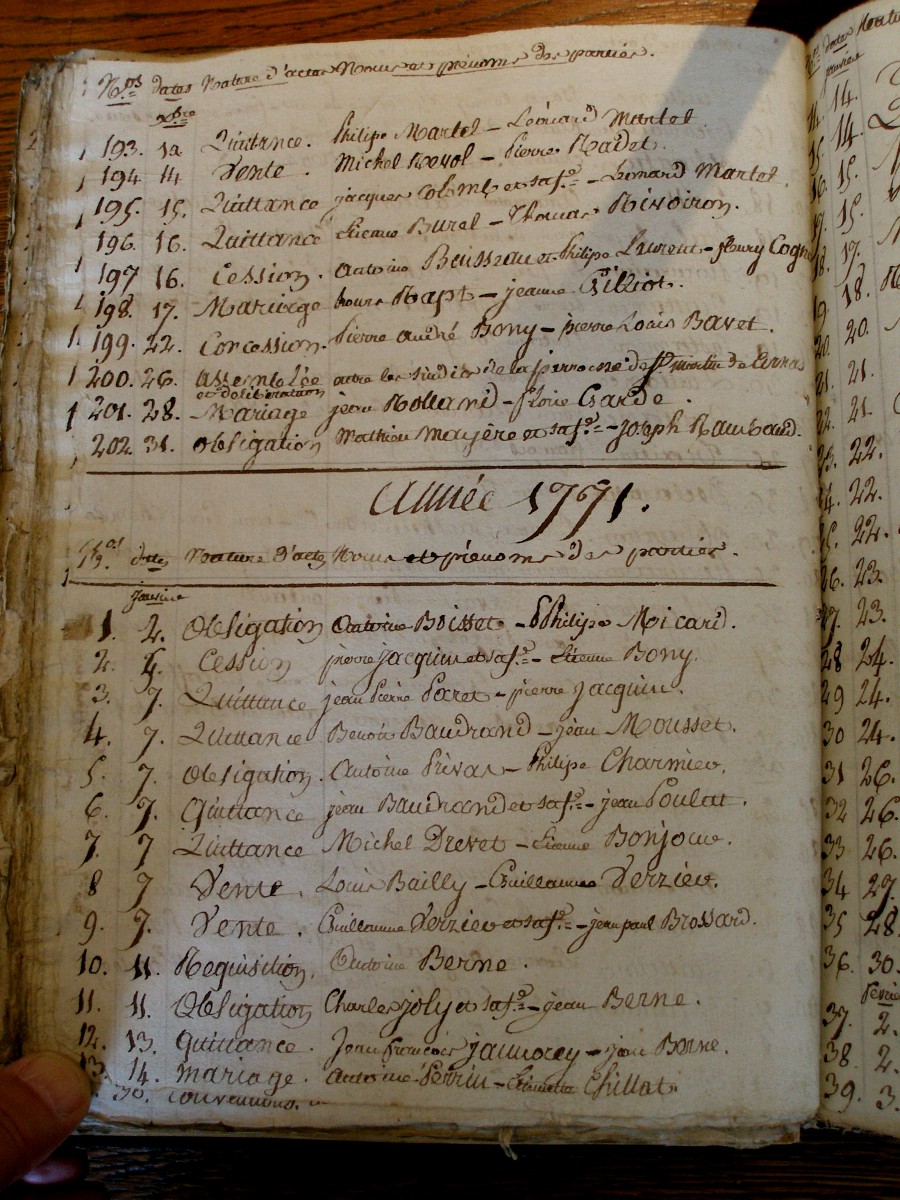 N.os dates Nature d'actes Noms et prénoms des parties.
xbre
193. 12 Quittance. Philipe Martel - Léonard Martel
194 14 Vente. Michel Revol - Pierre Radet.
195. 15. Quittance jacques Colomb et sa fe. - Leonard Martel.
196. 16. Quittance Etienne Bural - Thomas Rivoiron.
197 16 Cession. antoine Beisseau et Philipe Laurent - fleury Cogn
198. 17. Mariage Rapt - jeanne Gilliot.
199. 22. Concession. Pierre andré Bony - pierre Louis Bavet.
200. 26. assemblée entre les sindics de la parroesse de St martin de
et delibération
201. 28. Mariage jean Rolland - Garde.
202 31. obligation Mathieu Mayère et sa fe. - Joseph Rambaud.
Année 1771.
N.os dates Nature d'actes Noms et prénoms des parties.
janvier
1. 2. Obligation Antoine Boisset - Philipe Moicard.
2. 4. Cession pierre Jacquin et sa fe. - Etienne Bony.
3. 7. Quittance jean Pierre Paret - pierre Jacquin.
4. 7. Quittance Benoit Baudrand - jean Mousset.
5. 7. Obligation. Antoine Privas - Philipe Charmier.
6. 7. Quittance jean Baudrand et sa fe. - jean Poulat.
7. 7 Quittance Michel Drevet - Etienne Bonjour.
8 7 Vente. Louis Bailly - Guillaume Verzier.
9. 7. Vente. Guillaume Verzier et sa fe. - jean paul Brossard.
10. 11. Requisition. Antoine Berne.
11. 11. Obligation Charles joly et sa fe. - jean Berne.
12. 13. Quittance. Jean francois - jean Berne.
13 14. mariage. antoine Perrin - Chillat.
30. conventions.
dates
janvier
14.
14.
16. 15.
17. 15.
18. 17.
19 18.
20. 20.
21. 21.
22. 21.
23. 22.
24. 22.
25. 22.
26. 23.
27. 23.
28 24.
29 24.
30 24.
31 26.
32 26.
33 26.
34 27.
35 28.
36. 30.
février
37. 2.
38. 2.
39. 3.